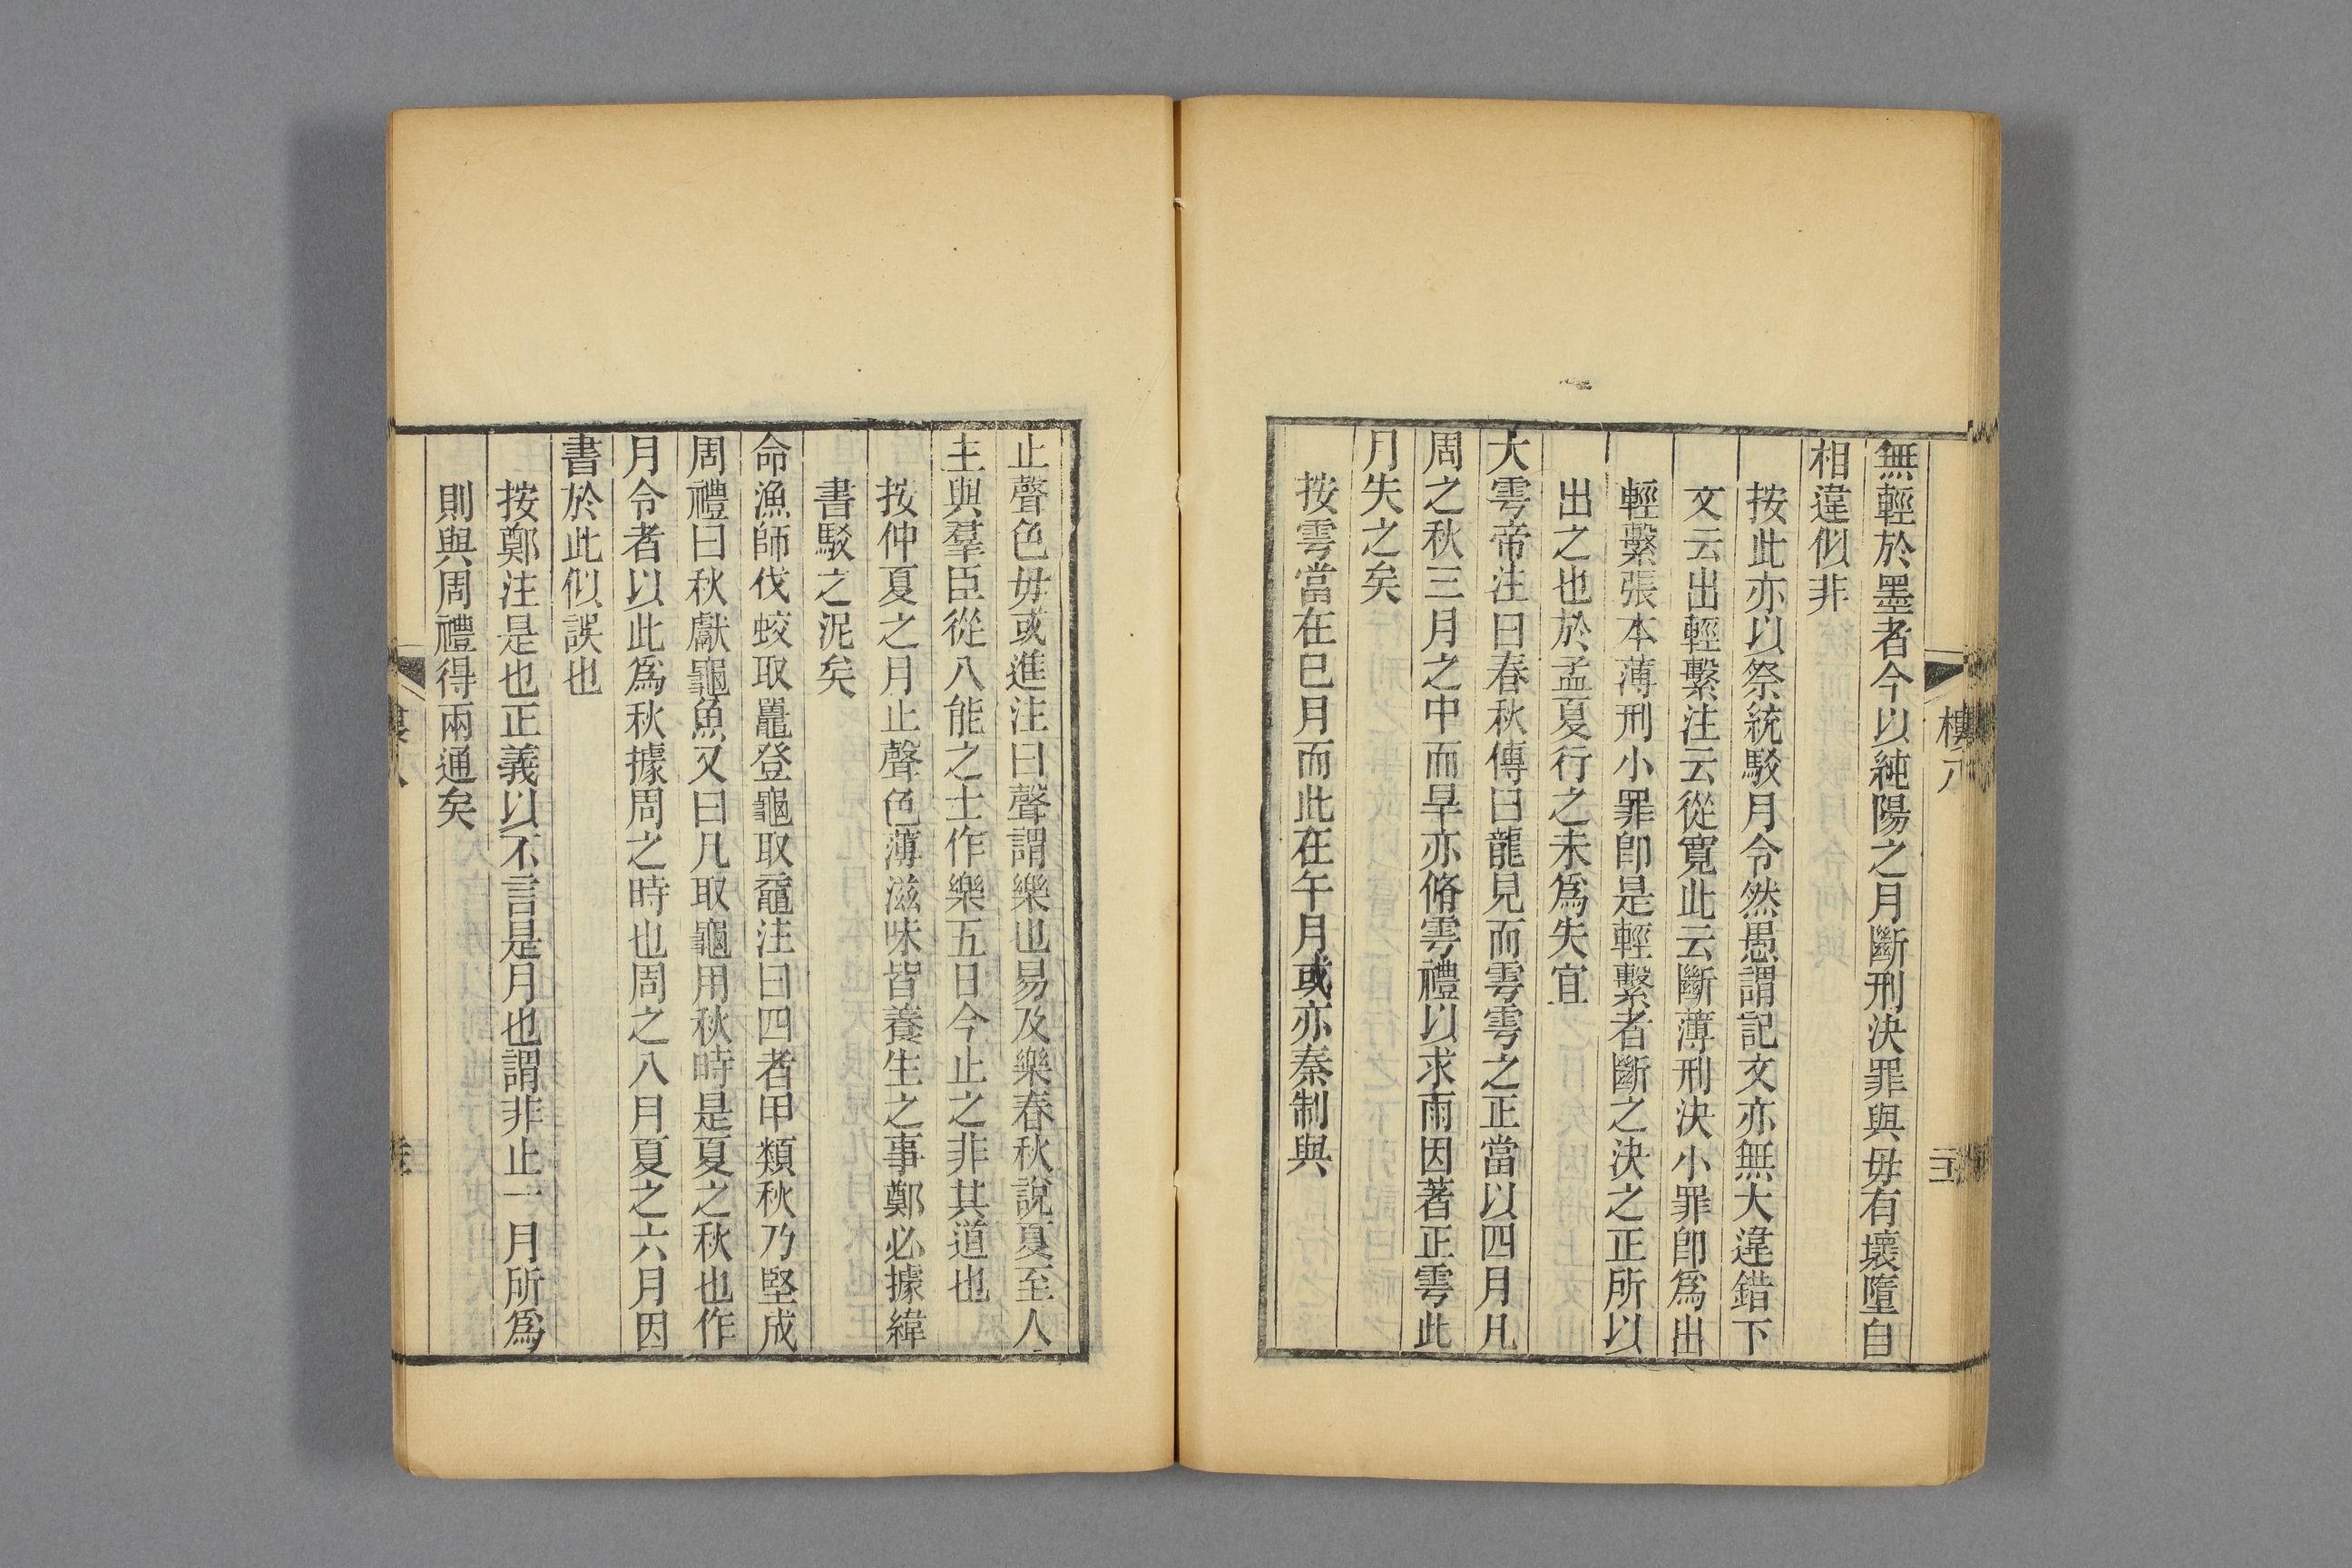 無輕於墨者今以純陽之月斷刑決罪與毋有壞墮自
相違似非
按此亦以祭統駁月令然愚謂記文亦無大違錯下
文云出輕繫注云從寬此云斷薄刑決小罪即爲出
輕繫張本薄刑小罪即是輕繫者斷之決之正所以
出之也於孟夏行之未爲失宜
大雩帝注曰春秋傳曰龍見而雩雩之正當以四月凡
周之秋三月之中而旱亦脩雩禮以求雨因著正雩此
月失之矣
按雩當在巳月而此在午月或亦秦制與
止聲色毋或進注曰聲謂樂也易及樂春秋說夏至人
主與羣臣從八能之士作樂五日今止之非其道也
按仲夏之月止聲色薄滋味皆養生之事鄭必據緯
書駁之泥矣
命漁師伐蛟取鼉登龜取黿注曰四者甲類秋乃堅成
周禮曰秋獻龜魚又曰凡取龜用秋時是夏之秋也作
月令者以此爲秋據周之時也周之八月夏之六月因
書於此似誤也
按鄭注是也正義以不言是月也謂非止一月所爲
則與周禮得兩通矣